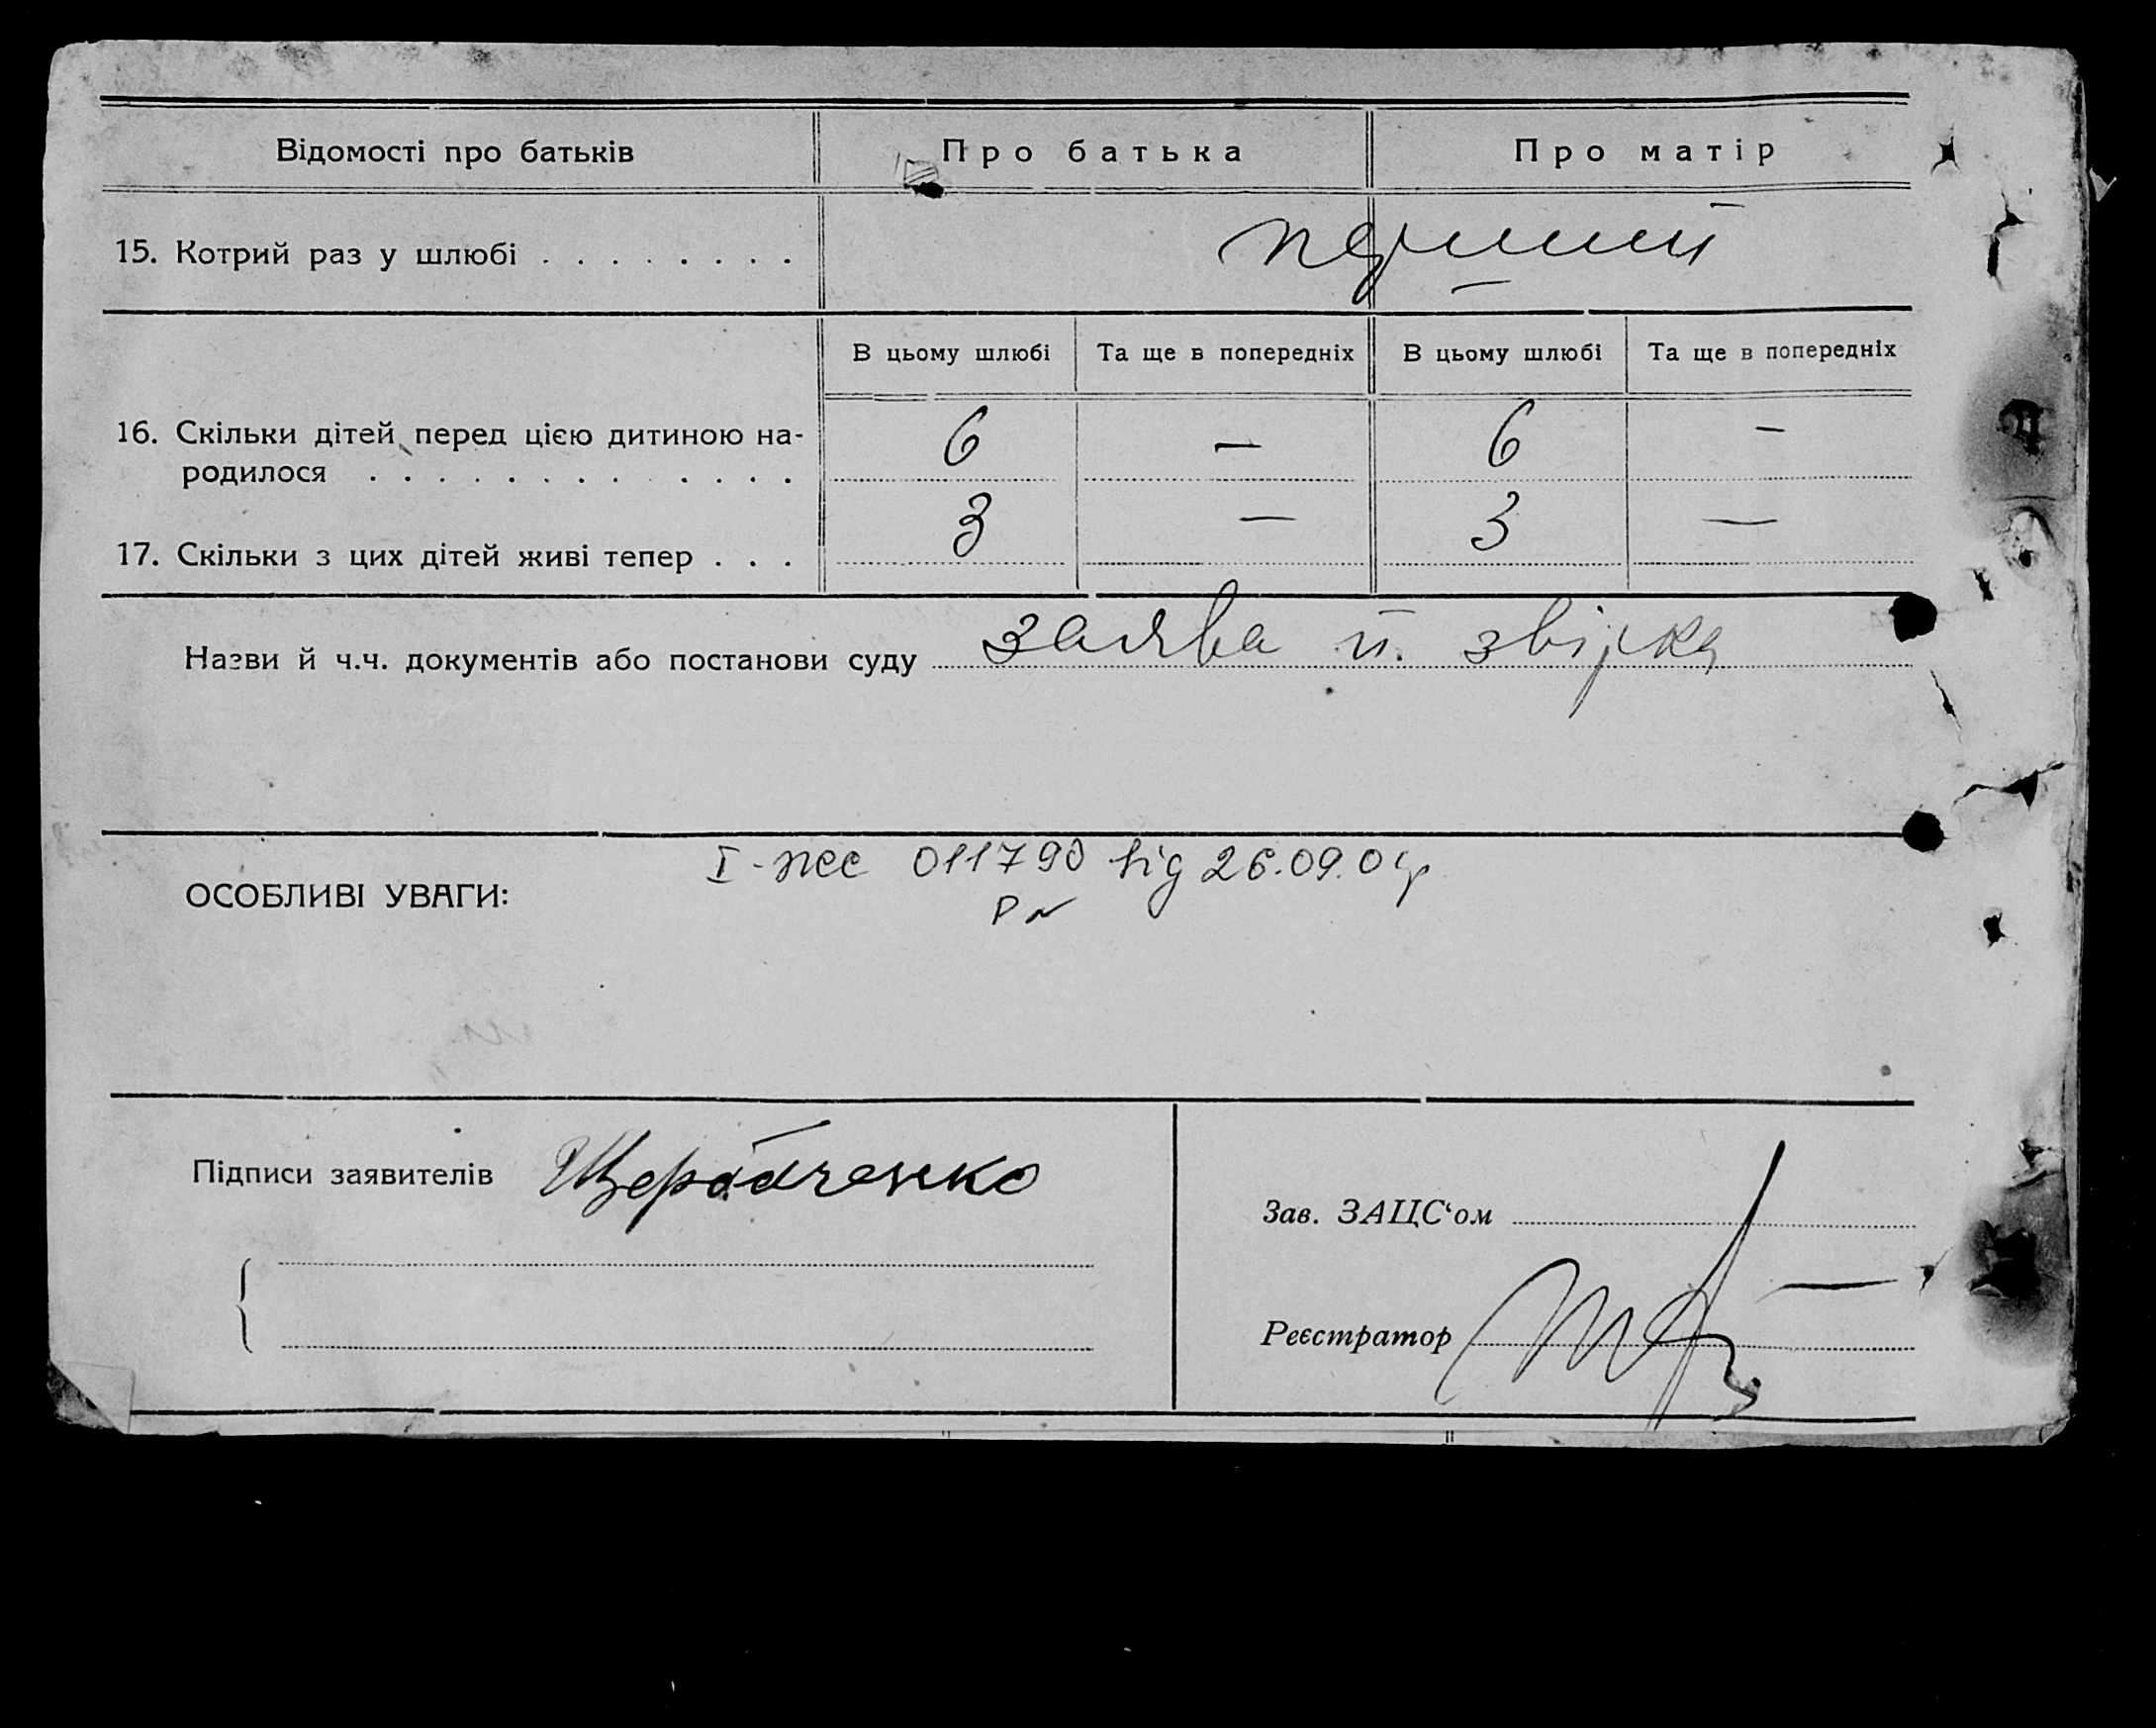 Відомості про батьків Про батька Про матір
15. Котрий раз у шлюбі . . . . . . . . перший
В цьому шлюбі Та ще в попередніх В цьому шлюбі Та ще в попередніх
16. Скільки дітей перед цією дитиною на-
родилося . . . . . . . . . . . . . . 6 — 6 —
17. Скільки з цих дітей живі тепер . . . 3 — 3 —
Назви й ч.ч. документів або постанови суду заява й. звірка
I-жес 011790 від 26.09.0
ОСОБЛИВІ УВАГИ:
Підписи заявителів
Зав. ЗАЦС‘ом
Реєстратор